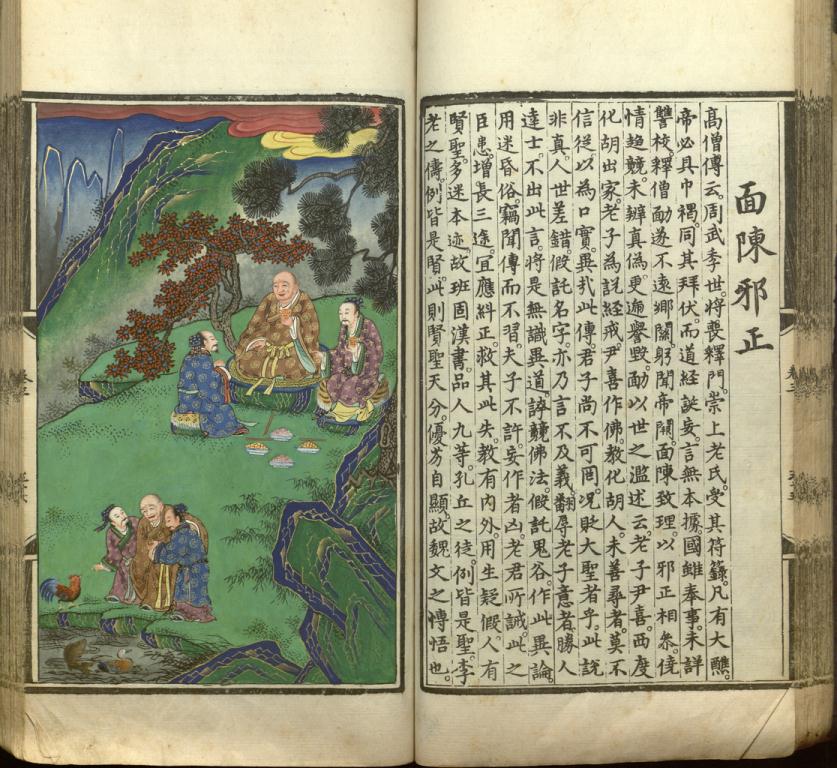 面陳邪正
高僧傳云。周武季世。將喪釋門。崇上老氏。受其符籙。凡有大醮。
帝必具巾褐。同其拜伏。而道經誕妄。言無本據。國雖奉事。未詳
讐校。釋僧勔遂不遠鄉關。躬聞帝闕。面陳致理。以邪正相參。僥
情趨競。未辨真偽。更遞譽毀。勔以世之濫述云。老子尹喜。西度
化胡出家。老子為説經戒。尹喜作佛。教化胡人。未善尋者。莫不
信從以為口實。異哉此傳。君子尚不可罔。况貶大聖者乎。此説
非真。人世差錯。假託名字。亦乃言不及義。翻辱老子。意者勝人
達士。不出此言。將是無識異道。誶競佛法。假託鬼谷。作此異論。
用迷昏俗。竊聞傳而不習。夫子不許。妄作者凶。老君所誡。此之
巨患。增長三塗。宜應糾正。救其此失。教有內外。用生疑假。人有
賢聖。多迷本迹。故班固漢書。品人九等。孔丘之徒。例皆是聖。李
老之儔。例皆是賢。此則賢聖天分。優劣自顯。故魏文之博悟也。